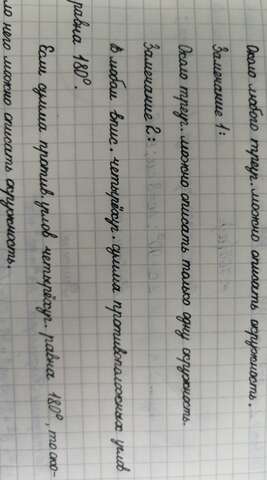 Около любого треуг. можно описать окружность.
Замечание 1:
Около треуг. можно описать только одну окружность.
Замечание 2:
В любом впис. четырёхуг. сумма противоположных углов
равна 180°.
Если сумма против. углов четырёхуг. равна 180°, то око-
ло него можно описать окружность.